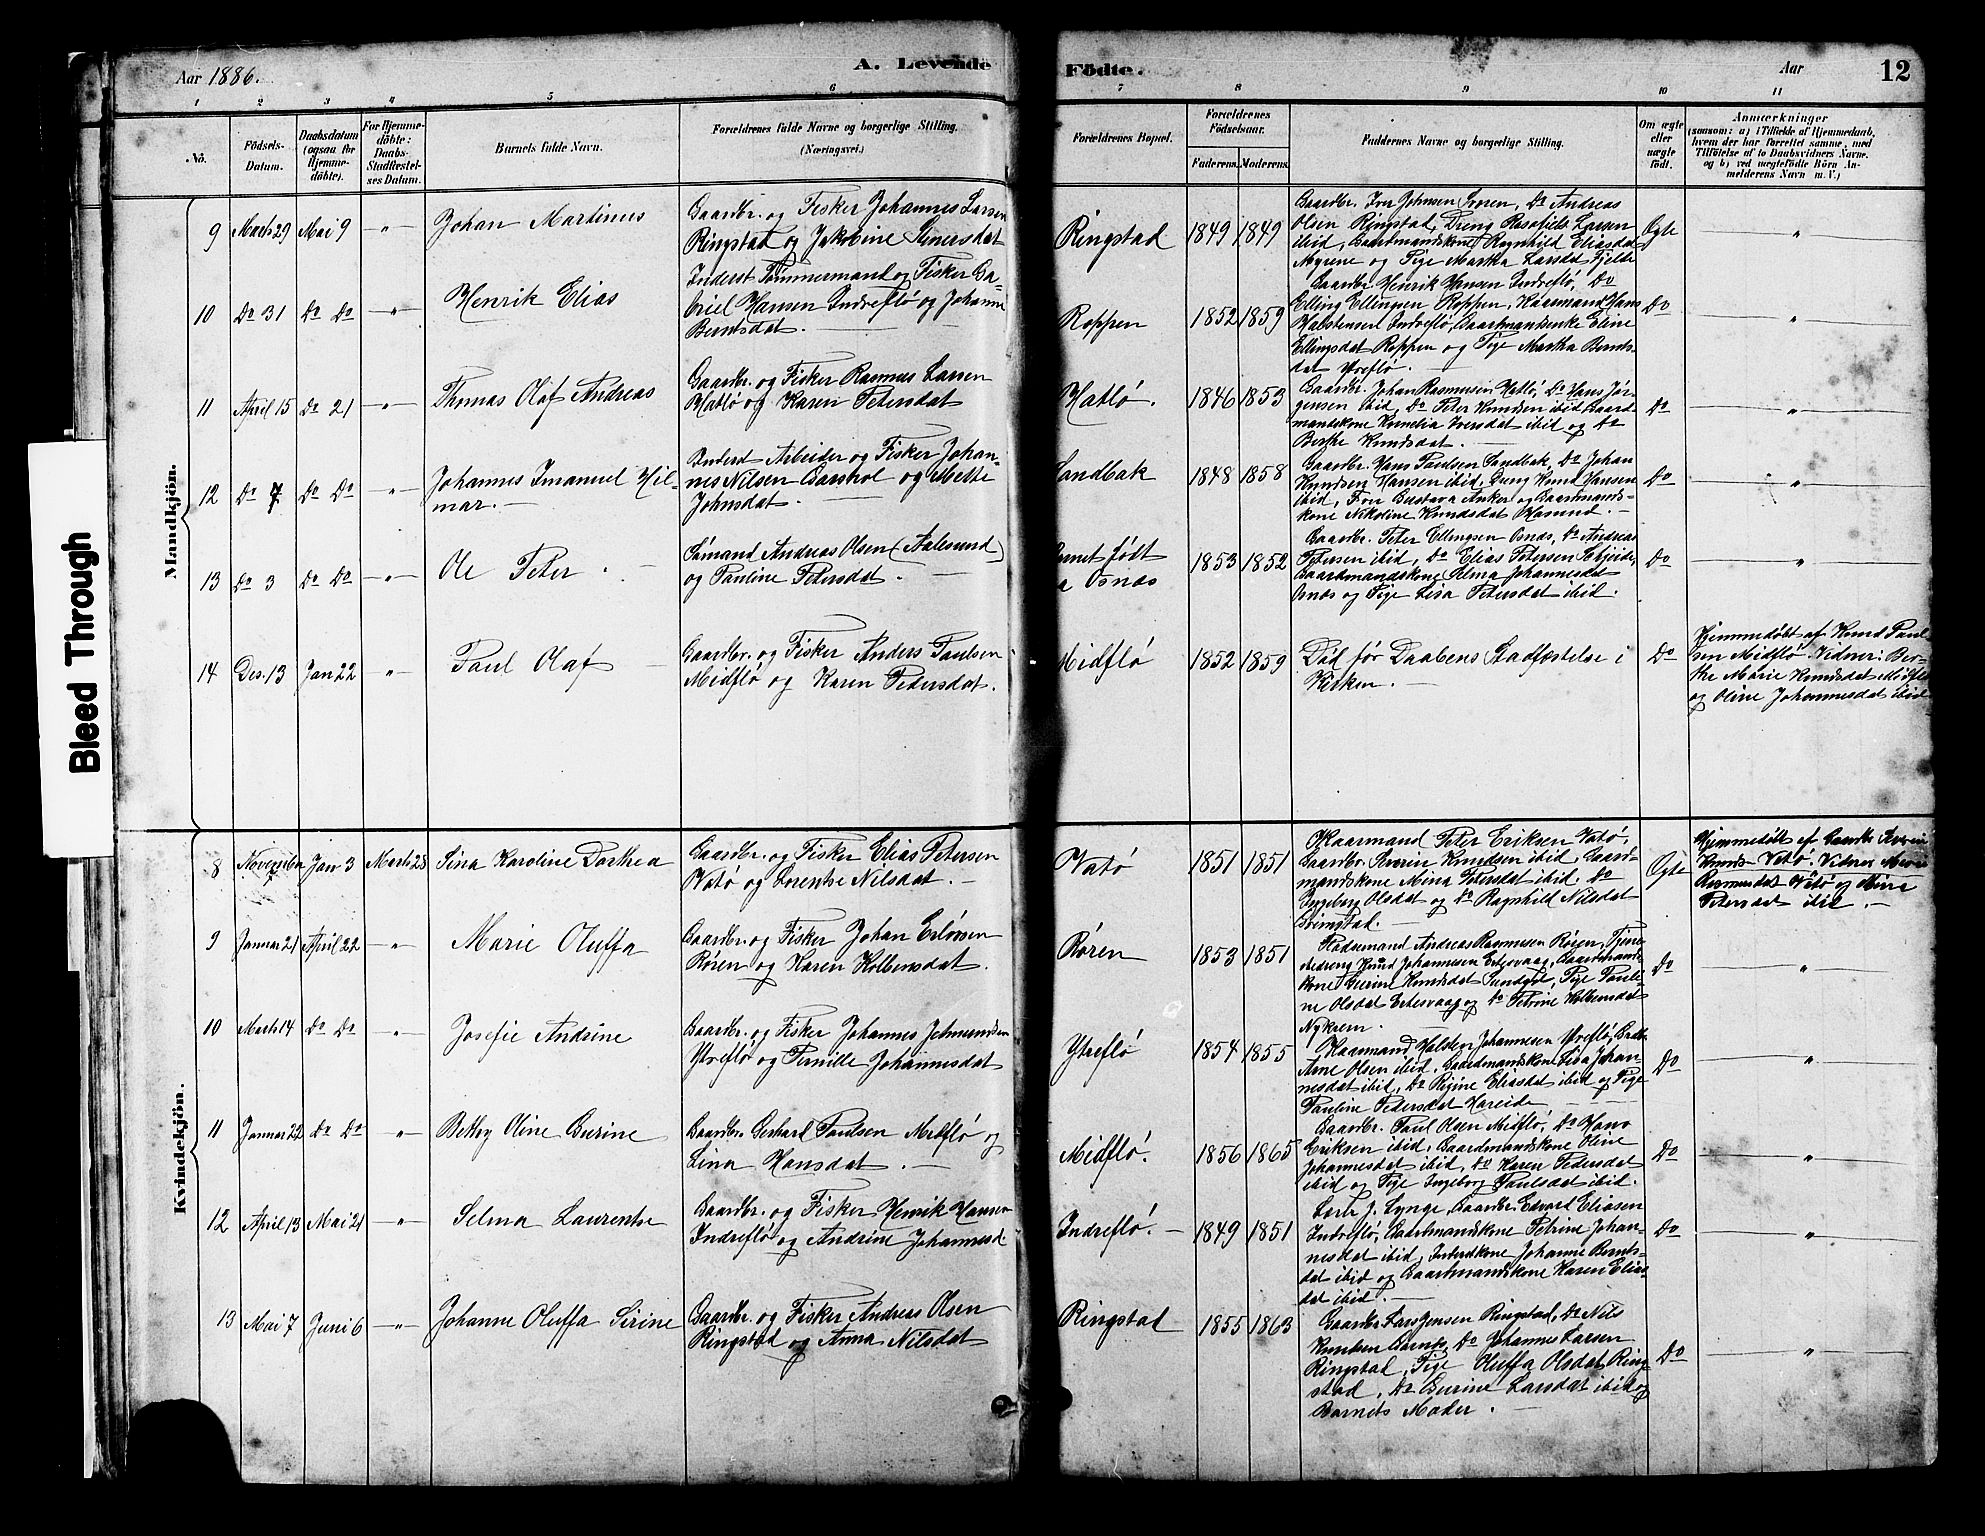 Aar 1886.
A. Levende
Födte.
Aar
12
1
2
3
4
5
6
7
8
9
10
11
No.
Födsels-
Datum.
Daabsdatum
(ogsaa for
Hjemme-
döbte).
For Hjemme-
döbte:
Daabs-
Stadfæstel-
ses Datum.
Barnets fulde Navn.
Forældrenes fulde Navne og borgerlige Stilling.
(Næringsvei.)
Forældrenes Bopæl.
Forældrenes
Födselsaar.
Faderens.
Moderens.
Faddernes Navne og borgerlige Stilling.
Om ægte
eller
uægte
födt.
Anmærkninger
(saasom: a) i Tilfælde af Hjemmedaab,
hvem der har forrettet samme, med
Tilföielse af to Daabsvidners Navne,
og b) ved uægtefödte Börn An-
melderens Navn m. V.)
Mandkjön.
9
Marts 29
Mai 9
"
Johan Martinus
Gaardbr. og Fisker Johannes Larsen
Ringstad og Jakobine
Ringstad
1849
1849
Gaardbr. Iver Johnsen Do Andreas
Olsen Ringstad, Dreng Larsen
ibid, Gaardmandskone Ragnhild Eliasdat
Myrene og Pige Martha Larsdat
Ægte
"
10
Do 31
Do Do
"
Henrik Elias
Inderst Tømmermand og Fisker Ga-
briel Hansen Indreflø og Johanne
Berntsdat.
Roppen
1852
1859
Gaardbr. Henrik Hansen Indreflø, Do
Elling Ellingsen Roppen, Kaarmand Hans
Halstensen Indreflø, Gaardmandsenke Eline
Ellingsdat Roppen og Pige Martha Bernts-
dat Ytreflø.
Do
"
11
April 15
Do 21
"
Thomas Olaf Andreas
Gaardbr. og Fisker Rasmus Larsen
Hatlø og Karen Petersdat
Hatlø.
1846
1853
Gaardbr. Johan Rasmusen Hatlø, Do Hans Jør-
gensen ibid, Do Peter Knudsen ibid Gaard-
mandskone Kornelia Iversdat ibid og Do
Berthe Knudsdat.
Do
"
12
Do 7
Do Do
"
Johannes Imanuel Hil-
mar.
Inderst Arbeider og Fisker Johan-
nes Nilsen Gaarshol og Mette
Johnsdat.
Sandbak
1848
1858
Gaardbr. Hans Paulsen Sandbak, Do Johan
Knudsen Hansen ibid, Dreng Knud Hansen
ibid, Fru Gustava Anker og Gaardmands-
kone Nikoline Knudsdat Hasund.
Do
"
13
Do 3
Do Do
"
Ole Peter.
Sømand Andreas Olsen (Aalesund)
og Pauline Petersdat.
født
Osnæs
1853
1852
Gaardbr. Peter Ellingsen Osnæs, Do Andreas
Petersen ibid, Do Elias Petersen
Gaardmandskone Johannesdat
Osnæs og Pige Lisa Petersdat ibid.
Do
"
14
Des. 13
Jan 22
"
Paul Olaf
Gaardbr. og Fisker Anders Paulsen
Midflø og Karen Pedersdat.
Midflø
1852
1859
Død før Daabens Stadfæstelse i
Kirken.
Do
Hjemmedøbt af Knud Paul-
sen Midflø. Vidner: Ber-
the Marie Knudsdat Midflø
og Oline Johannesdat ibid
Kvindekjön.
8
November
7
Jan 3
Marts 28
Sina Karoline Dorthea
Gaardbr. og Fisker Elias Petersen
Vatø og Lorentse Nilsdat.
Vatø
1851
1851
Kaarmand Peter Eriksen Vatø,
Gaardbr. Knudsen ibid, Gaard-
mandskone Mina Petersdat ibid. Do
Ingeborg Olsdat og Do Ragnhild Nilsdat
Ringstad.
Ægte
Hjemmedøbt af
Vatø. Vidner
Rasmusdat Vatø og Mina
Petersdat ibid.
9
Januar 21
April 22
"
Marie Oluffa
Gaardbr. og Fisker Johan
Røren og Karen Kolbensdat.
Røren
1853
1851
Andreas Rasmusen Røren, Tjene-
stedreng Knud Johannesen Ertesvaag, Gaardmands-
kone Gurine Knudsdat Pige Pauli-
ne Olsdat Ertesvaag og Do Petrine Kolbensdat
Do
"
10
Marts 14
Do Do
"
Josefie Andrine
Gaardbr. og Fisker Johannes
Ytreflø og Pernille Johannesdat
Ytreflø
1854
1855
Kaarmand Johannesen Ytreflø,
Arne Olsen ibid, Gaardmandskone Lisa Johan-
nesdat ibid, Do Regine Eliasdat ibid og Pige
Pauline Pedersdat Hareide
Do
"
11
Januar 22
Do Do
"
Bethy Oline Gurine
Gaardbr. Gerhard Paulsen Midflø og
Lina Hansdat.
Midflø.
1856
1865
Gaardbr. Paul Olsen Midflø, Do Hans
Eriksen ibid, Gaardmandskone Oline
Johannesdat ibid, Do Karen Pedersdat
ibid og Pige Ingeborg Paulsdat ibid.
Do
"
12
April 13
Mai 21
"
Selma Laurentse
Gaardbr. og Fisker Henrik Hansen
Indreflø og Andrine Johannesd
Indreflø.
1849
1851
J. Lynge, Gaardbr. Edvard Eliasen
Indreflø, Gaardmandskone Petrine Johan-
nesdat ibid, Inderstkone Johanne Bernts-
dat ibid og Gaardmandskone Karen Elias-
dat ibid.
Do
"
13
Mai 7
Juni 6
"
Johanne Oluffa Sirine
Gaardbr. og Fisker Andreas Olsen
Ringstad og Anna Nilsdat
Ringstad
1855
1863
Gaardbr. Lars Jensen Ringstad, Do Nils
Knudsen Do Johannes Larsen
Ringstad, Pige Oluffa Olsdat Ring-
stad, Do Gurine Larsdat ibid og
Barnets Moder.
Do
"
Bleed Through